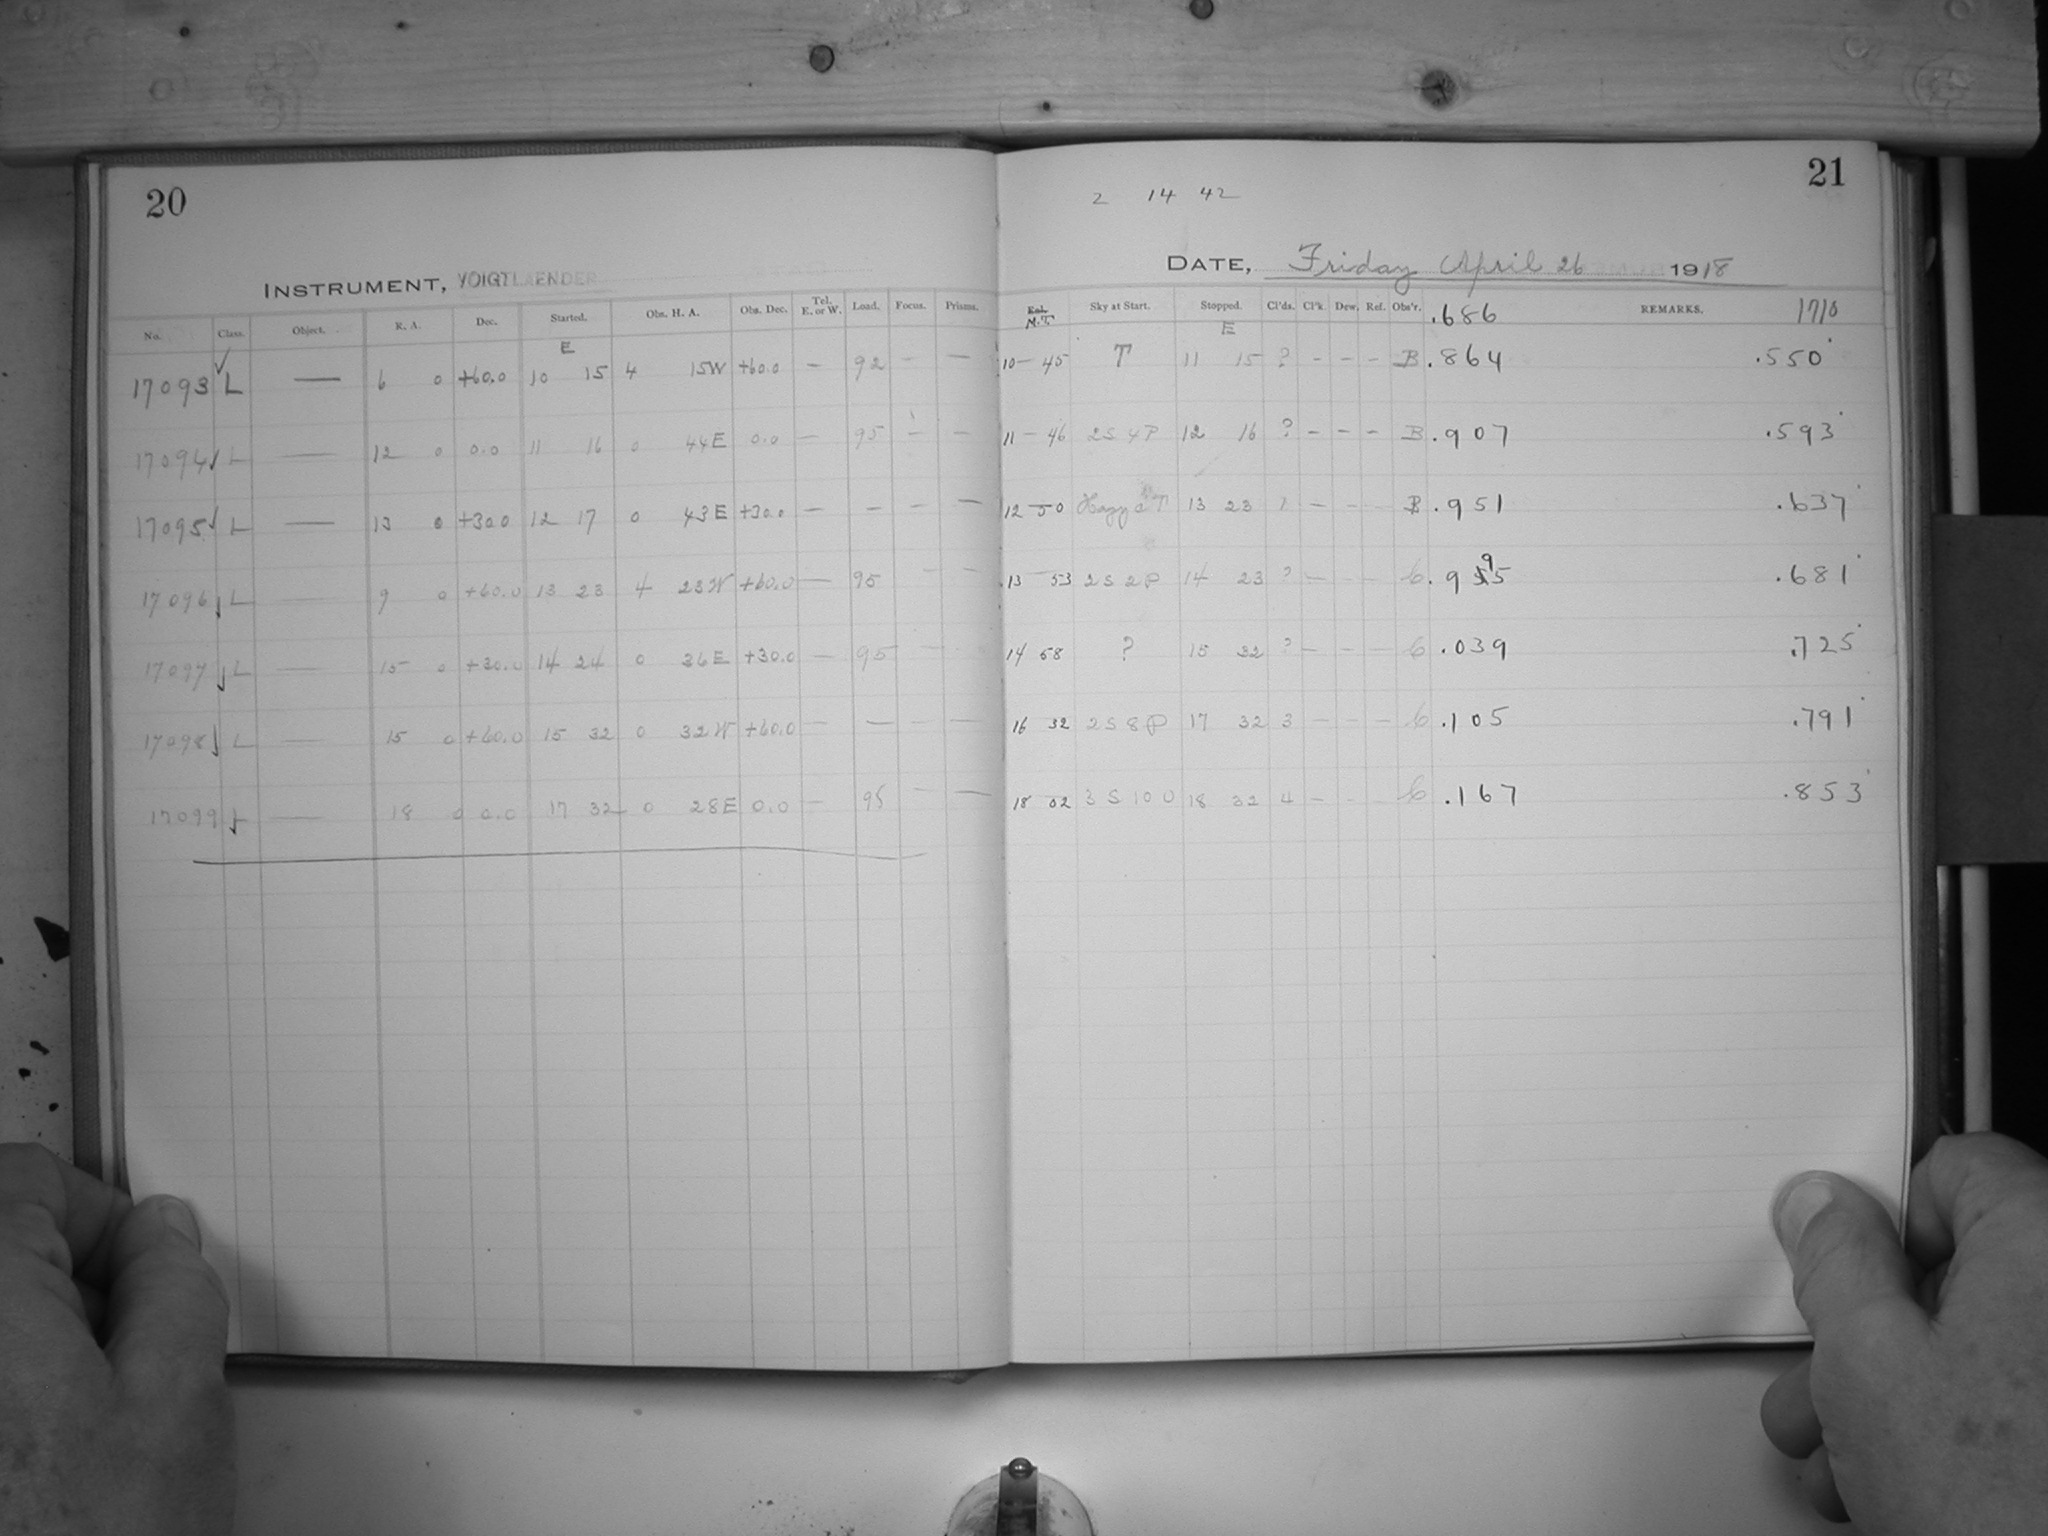 20
INSTRUMENT, VOIGTLAENDER
No. Class. Object. R. A. Dec. Started. Obs. H. A. Obs. Dec. Tel. E. or W. Load. Focus. Prisms.
E
17093 ✓ L — 6 0 +60.0 10 15 4 15W +60.0 — 92 — —
17094 ✓ L — 12 0 0.0 11 16 0 44E 0.0 — 95 — —
17095 ✓ L — 13 0 +30.0 12 17 0 43E +30.0 — — — —
17096 ✓ L — 9 0 +60.0 13 23 4 23W +60.0 — 95 — —
17097 ✓ L — 15 0 +30.0 14 24 0 36E +30.0 — 95 — —
17098 ✓ L — 15 0 +60.0 15 32 0 32W +60.0 — — — —
17099 ✓ L — 18 0 0.0 17 32 0 28E 0.0 — 95 — —
21
2 14 42
DATE, Friday April 26 1918
M.T. Sky at Start. Stopped. Cl'ds. Cl'k. Dew. Ref. Obs'r. .686 REMARKS. 1710
E
10—45 T 11 15 ? - - - B .864 .550
11—46 2S 4P 12 16 ? - - - B .907 .593
12—50 Hazy 13 23 ? - - - B .951 .637
13 53 2S 2P 14 23 ? - - - C .995 .681
14 58 ? 15 32 ? - - - C .039 .725
16 32 2S 8P 17 32 3 - - - C .105 .791
18 02 3 S 10 U 18 32 4 - - C .167 .853